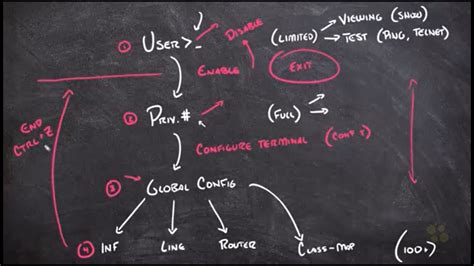 ① USER>_
DISABLE
(LIMITED)
VIEWING (SHOW)
TEST (PING, TELNET)
ENABLE
EXIT
② PRIV.#
(FULL)
END
CTRL+Z
CONFIGURE TERMINAL (CONF T)
③ GLOBAL CONFIG
④ INF LINE ROUTER CLASS-MAP (100%)